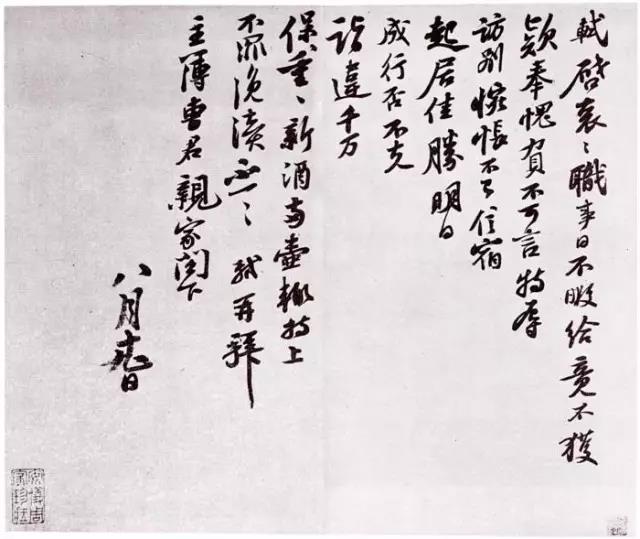 軾啓衮〻職事日不暇給竟不獲
款奉愧負不可言特辱
訪別惋悵不已信宿
起居佳勝明日
成行否不克
詣違千万
保重〻新酒两壺輙持上
不罪浼瀆不一〻軾再拜
主簿曹君親家閤下
八月日